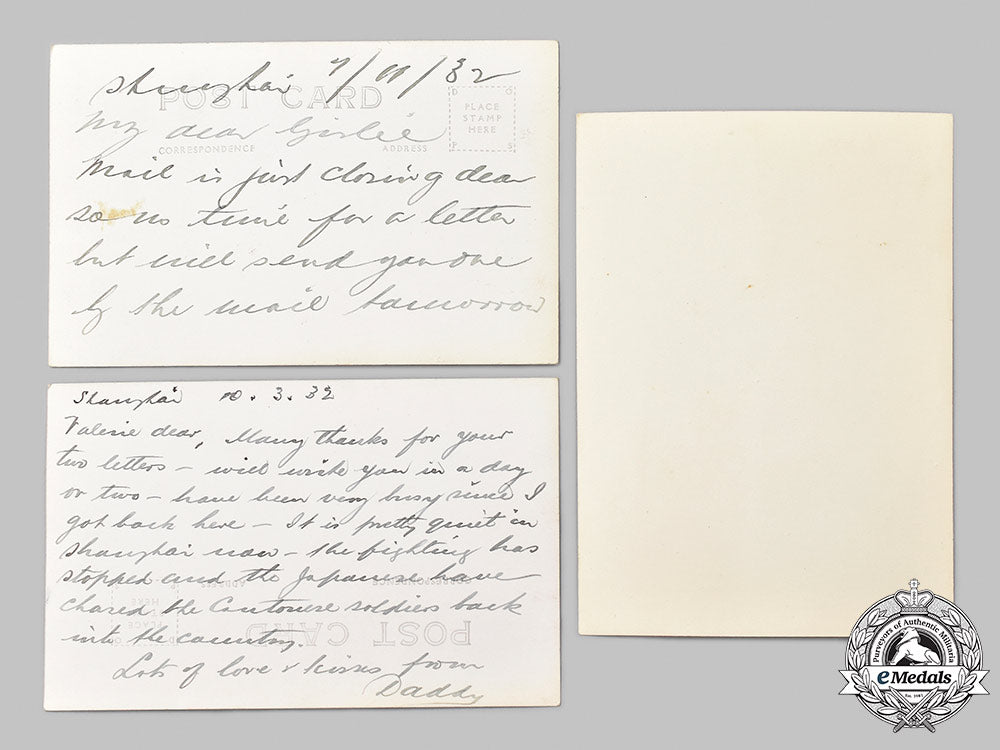 Shanghai 7/11/32
POST CARD
My dear Girlie
CORRESPONDENCE ADDRESS
PLACE
STAMP
HERE
D O
P S
Mail is just closing dear
so no time for a letter
but will send you one
by the mail tomorrow
Shanghai 10.3.32
Valerie dear, Many thanks for your
two letters - will write you in a day
or two - have been very busy since I
got back here - It is pretty quiet in
Shanghai now - the fighting has
stopped and the Japanese have
chased the Cantonese soldiers back
into the country.
Lots of love & kisses from
Daddy
POST CARD
CORRESPONDENCE
ADDRESS
PLACE
HERE
Purveyors of Authentic Militaria
eMedals